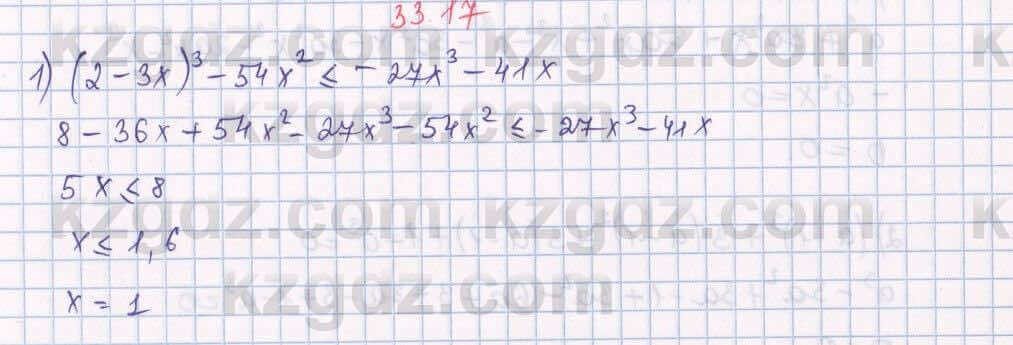 33.17
1) (2 - 3x)³ - 54x² ≤ - 27x³ - 41x
8 - 36x + 54x² - 27x³ - 54x² ≤ - 27x³ - 41x
5x ≤ 8
x ≤ 1,6
x = 1
kzgdz.com kzgdz.com
kzgdz.com
kzgdz.com kzgdz.com
kzgdz.com